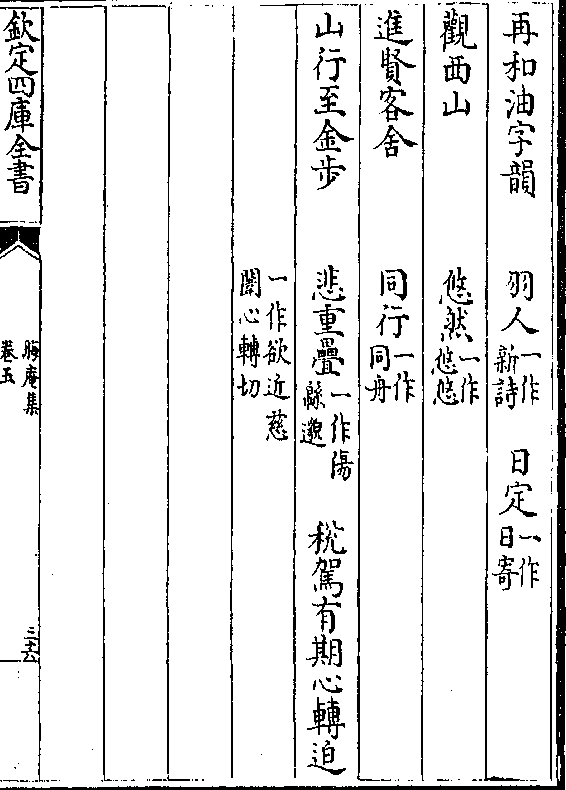 再和油字韻　羽人一作新詩　日定一作日寄
觀西山　悠然一作悠悠
進賢客舍　同行一作同舟
山行至金步　悲重疊一作傷緜邈　稅駕有期心轉迫
一作欲近慈闈心轉切
欽定四庫全書　晦庵集卷五　三十六